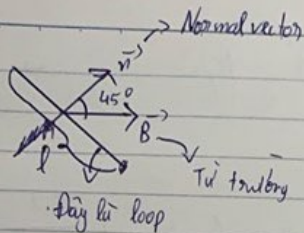 Normal vector
n
45°
B
Từ trường
l
Đây là loop